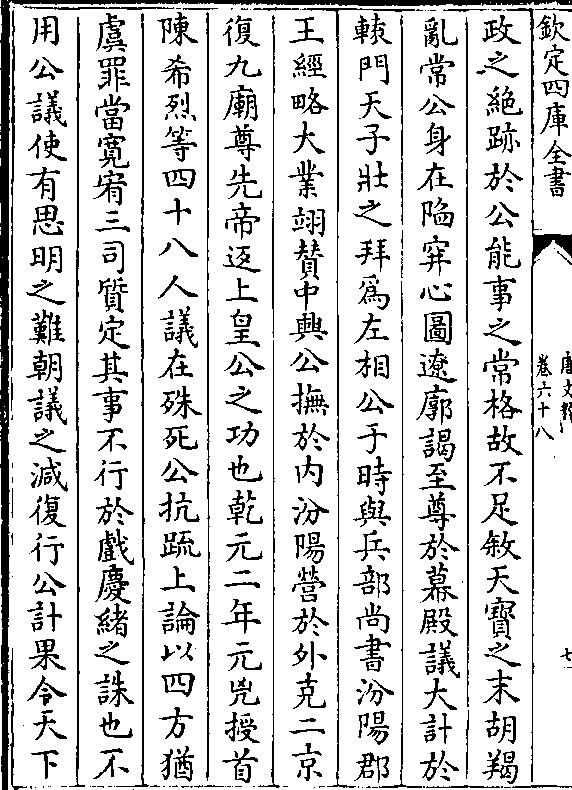 欽定四庫全書
唐文粹
卷六十八
七
政之絶跡於公能事之常格故不足敘天寶之末胡羯
亂常公身在陷穽心圖遼廓謁至尊於幕殿議大計於
轅門天子壯之拜爲左相公于時與兵部尚書汾陽郡
王經略大業翊賛中興公撫於内汾陽營於外克二京
復九廟尊先帝迓上皇公之功也乾元二年元兇授首
陳希烈等四十八人議在殊死公抗䟽上論以四方猶
虞罪當寛宥三司質定其事不行於戲慶緒之誅也不
用公議使有思明之難朝議之減復行公計果令天下